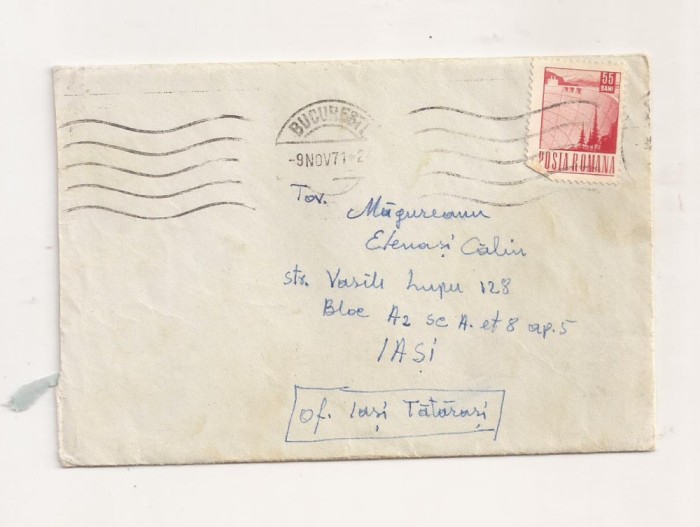 55
BANI
POSTA ROMANA
BUCUREȘTI
-9NOV71-2
Tov. Măgureanu
Elena și Călin
str. Vasile Lupu 128
Bloc A2 sc A. et 8 ap. 5
IAȘI
of. Iași Tătărași